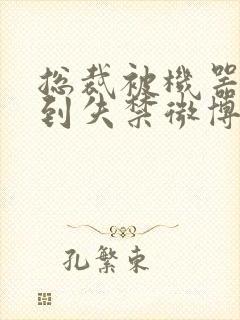 总裁被機器
到失禁微博
孔繁東